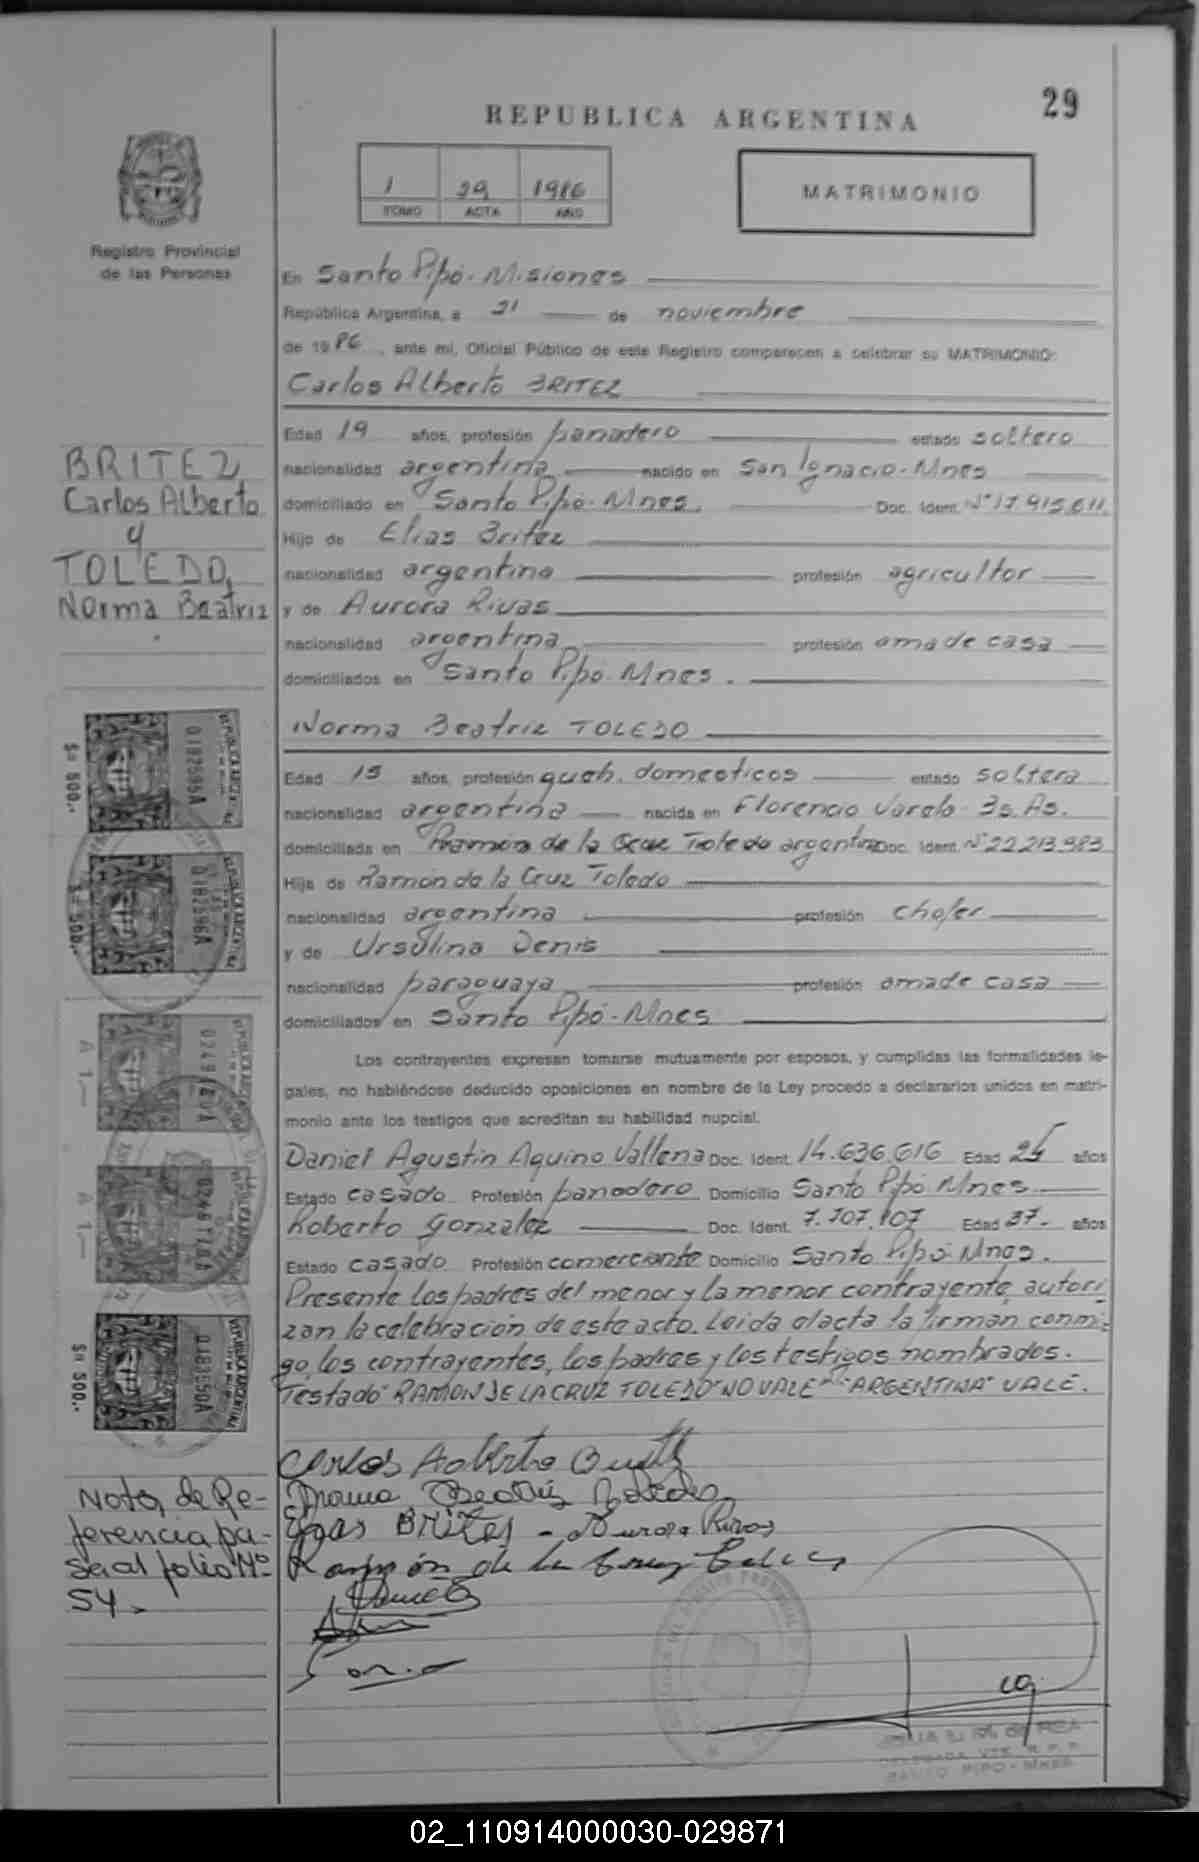 29
REPUBLICA ARGENTINA
1 29 1986
TOMO ACTA AÑO
MATRIMONIO
Registro Provincial
de las Personas
En Santo Pipó - Misiones
República Argentina, a 21 de noviembre
de 1986, ante mi, Oficial Público de este Registro comparecen a celebrar su MATRIMONIO:
Carlos Alberto BRITEZ
Edad 19 años, profesión panadero estado soltero
nacionalidad argentina nacido en San Ignacio - Mnes
domiciliado en Santo Pipó - Mnes. Doc. Ident. Nº 17.915.611
Hijo de Elias Britez
nacionalidad argentina profesión agricultor
y de Aurora Rivas
nacionalidad argentina profesión ama de casa
domiciliados en Santo Pipó - Mnes.
Norma Beatriz TOLEDO
Edad 15 años, profesión queh. domesticos estado soltera
nacionalidad argentina nacida en Florencio Varela - Bs. As.
domiciliada en Ramón de la Cruz Toledo argentina Doc. Ident. Nº 22.213.983
Hija de Ramón de la Cruz Toledo
nacionalidad argentina profesión chofer
y de Ursulina Denis
nacionalidad paraguaya profesión ama de casa
domiciliados en Santo Pipó - Mnes
Los contrayentes expresan tomarse mutuamente por esposos, y cumplidas las formalidades le-
gales, no habiéndose deducido oposiciones en nombre de la Ley procedo a declararlos unidos en matri-
monio ante los testigos que acreditan su habilidad nupcial.
Daniel Agustin Aquino Vallena Doc. Ident. 14.636.616 Edad 25 años
Estado casado Profesión panadero Domicilio Santo Pipó Mnes
Roberto Gonzalez Doc. Ident. 7.707.107 Edad 37.- años
Estado casado Profesión comerciante Domicilio Santo Pipó Mnes.
Presente los padres del menor y la menor contrayente, autori
zan la celebración de este acto. Leida el acta la firman conmi-
go, los contrayentes, los padres y los testigos nombrados.
Testado "RAMON DE LA CRUZ TOLEDO" NO VALE "ARGENTINA" VALE.
Carlos Alberto
Norma Beatriz Toledo
Elias BRITEZ - Aurora Rivas
Ramón de la Cruz Toledo
BRITEZ
Carlos Alberto
y
TOLEDO,
Norma Beatriz
$a 500.-
0182595A
REPUBLICA ARGENTINA
$a 500.-
0182596A
REPUBLICA ARGENTINA
A 1.-
A 1.-
$a 500.-
REPUBLICA ARGENTINA
Nota de Re-
ferencia pa-
sa al folio Nº
54.
SANTO PIPO - MNES
02_110914000030-029871